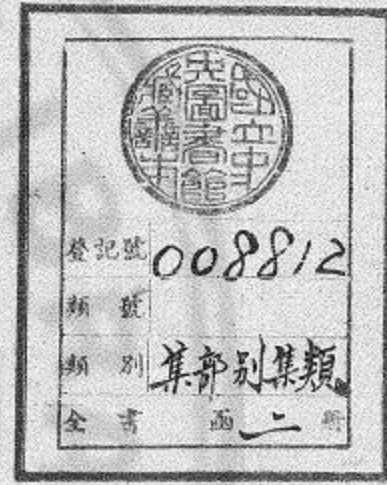 國立中
央圖書館
登記號 008812
類號
類別 集部別集類
全書 函 二 冊